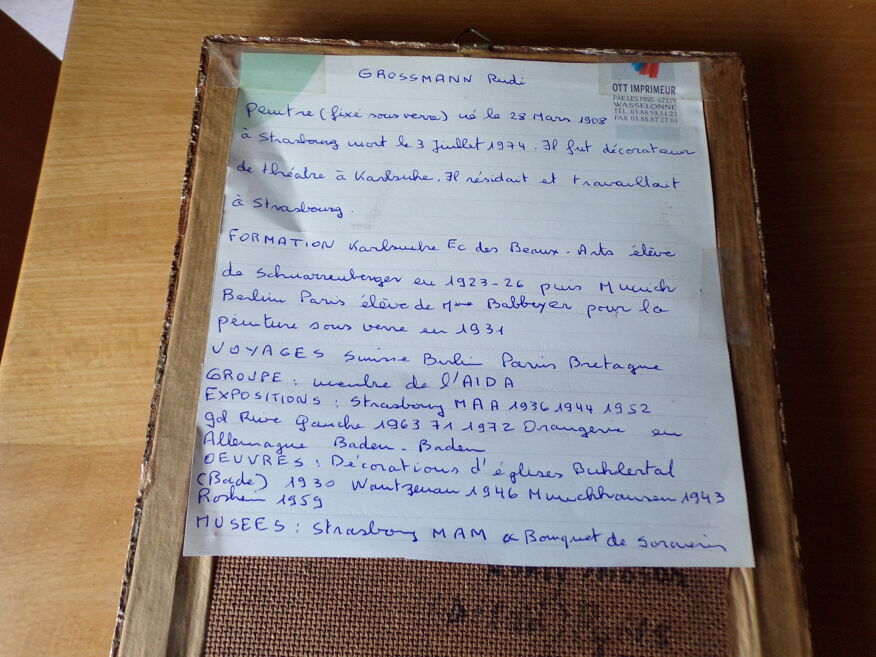 GROSSMANN Rudi
OTT IMPRIMEUR
PAE LES PINS 67319
WASSELONNE
TÉL. 03.88.59.11.22
FAX 03.88.87.27.01
Peintre (fixé sous verre) né le 28 Mars 1908
à Strasbourg mort le 3 Juillet 1974. Il fut décorateur
de théatre à Karlsruhe. Il résidait et travaillait
à Strasbourg.
FORMATION Karlsruhe Ec des Beaux-Arts élève
de Schnarrenberger en 1923-26 puis Munich
Berlin Paris élève de Mme Babbeyer pour la
peinture sous verre en 1931
VOYAGES Suisse Berlin Paris Bretagne
GROUPE : membre de l'AIDA
EXPOSITIONS : Strasbourg MAA 1936 1944 1952
gd Rive Gauche 1963 71 1972 Orangerie en
Allemagne Baden-Baden
OEUVRES : Décorations d'églises Buhlertal
(Bade) 1930 Wantzenau 1946 Munchhausen 1943
Rosheim 1959
MUSEES : Strasbourg MAM Bouquet de